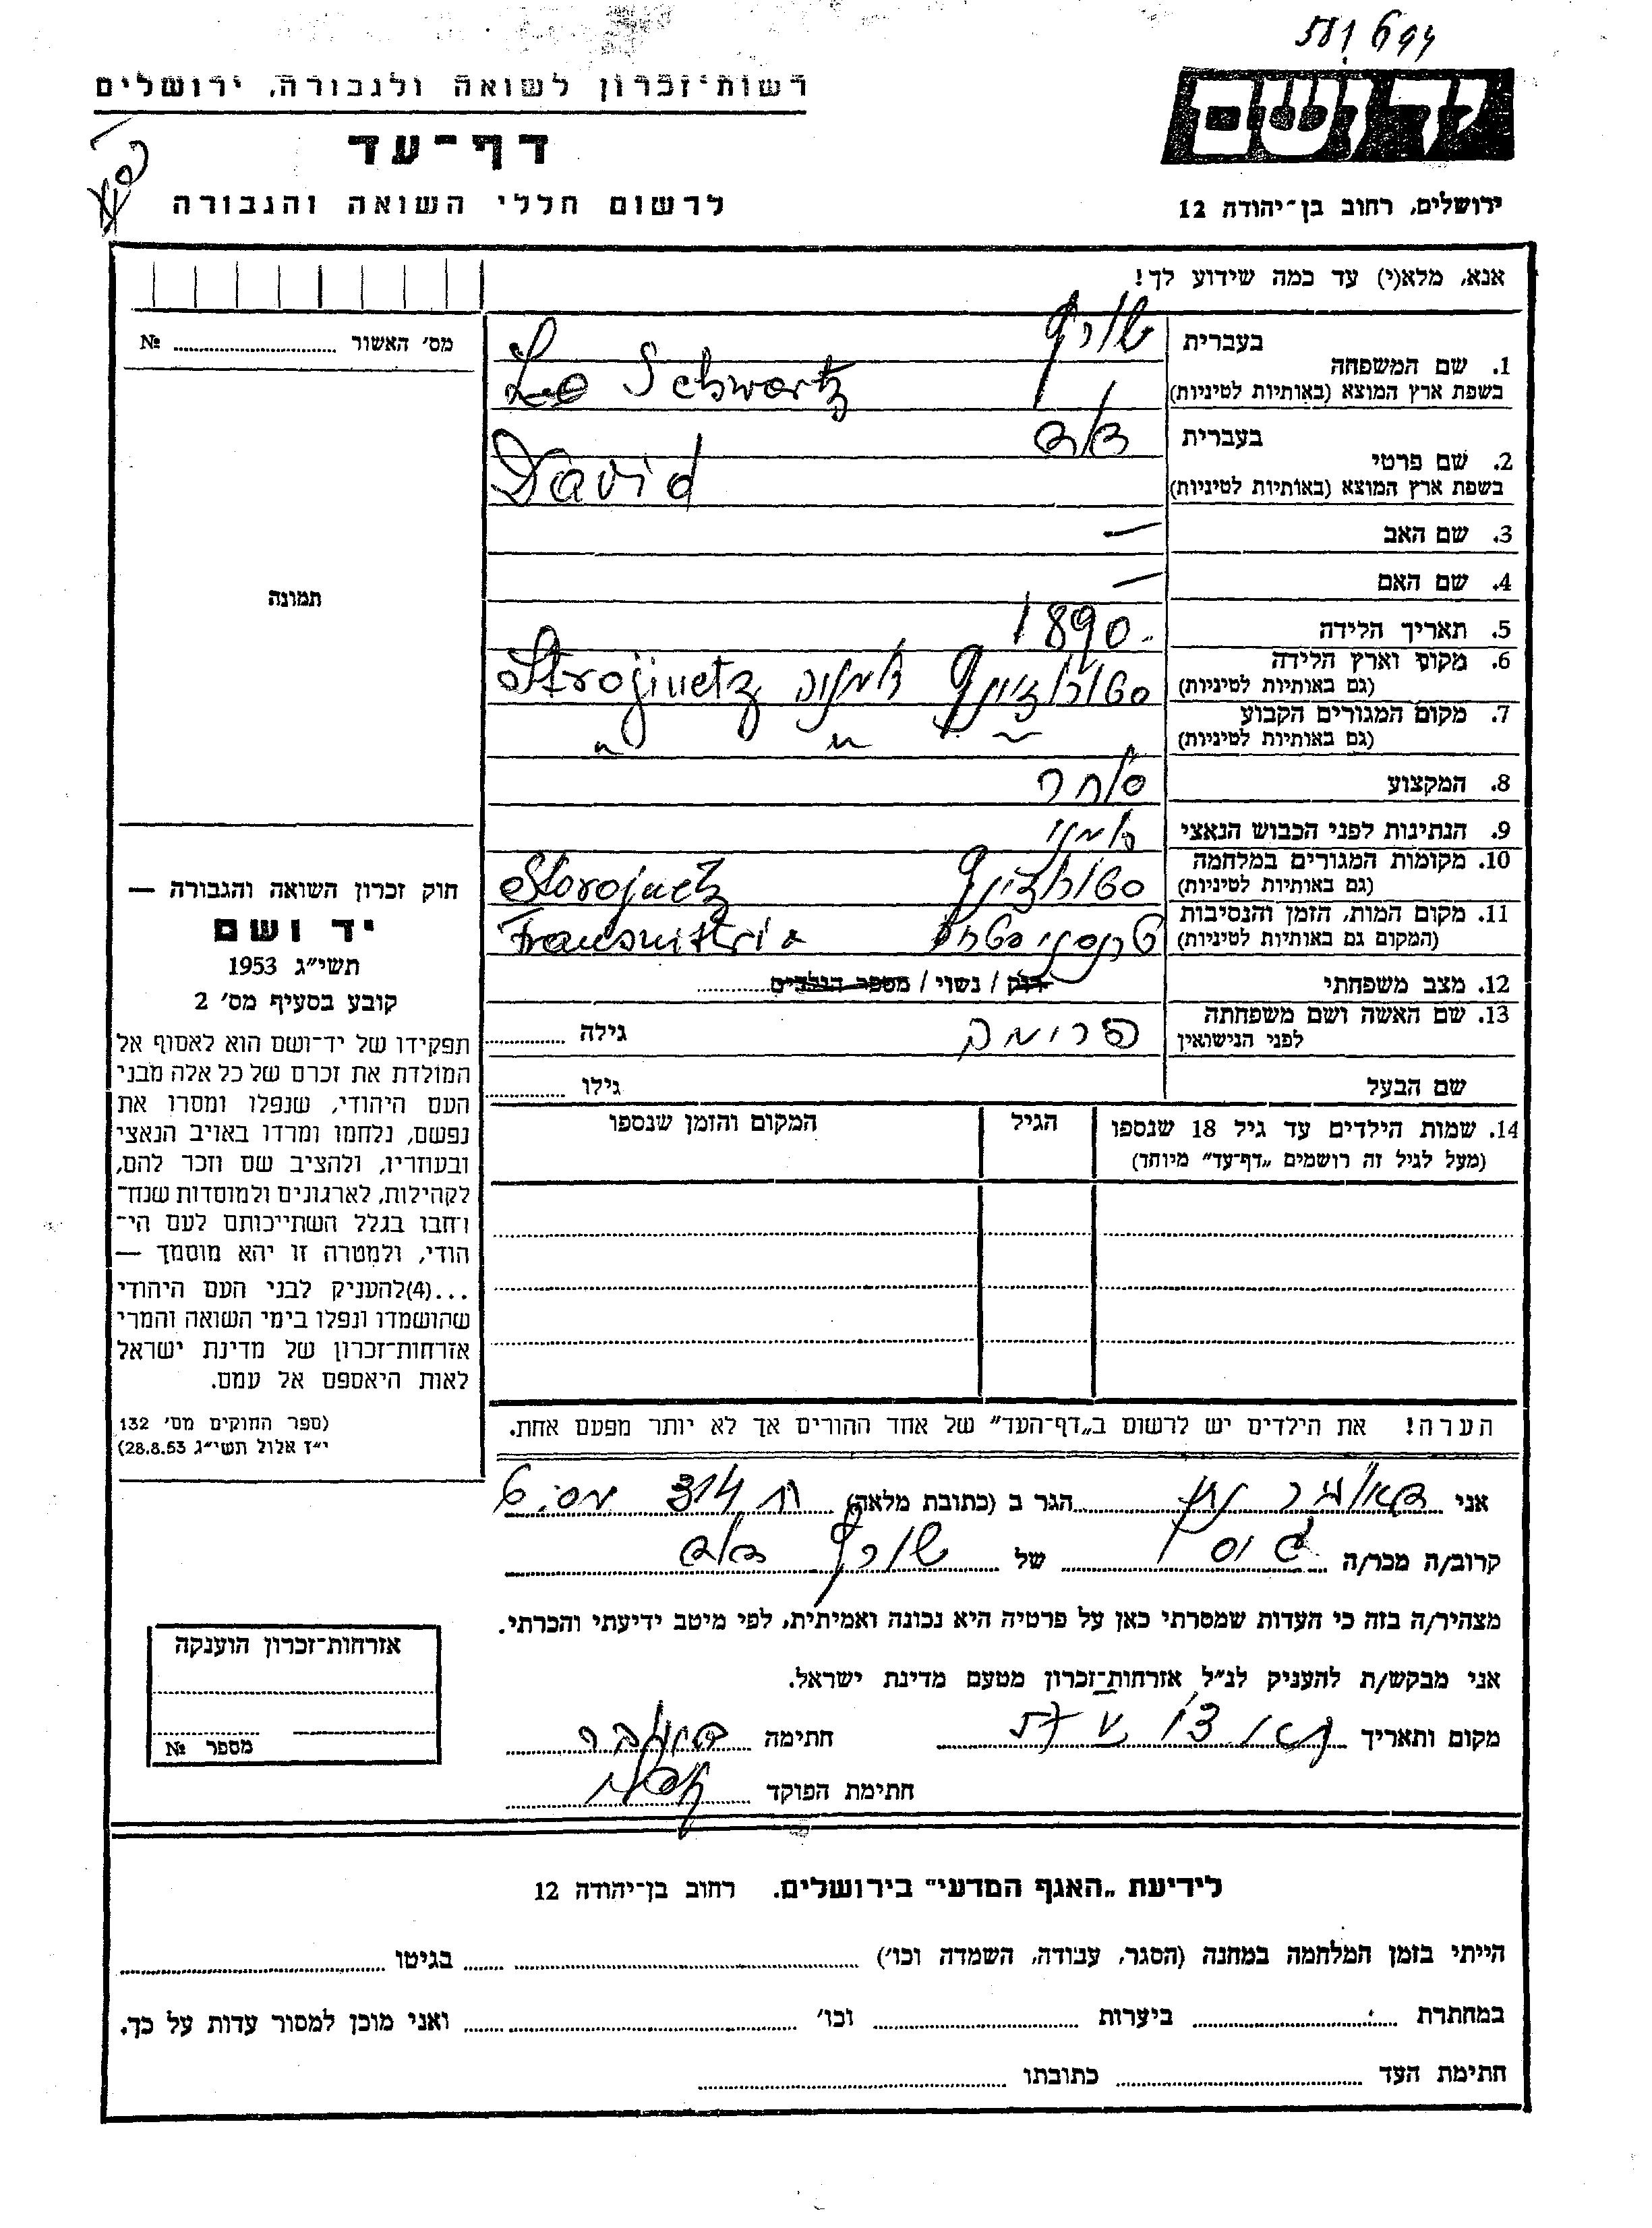 רשות־זכרון לשואה ולגבורה, ירושלים
יד ושם
דף־עד
לרשום חללי השואה והגבורה
ירושלים, רחוב בן־יהודה 12
אנא, מלא(י) עד כמה שידוע לך!
מס׳ האשור № ........
תמונה
1. שם המשפחה
בעברית
בשפת ארץ המוצא (באותיות לטיניות)
Schwartz
2. שם פרטי
בעברית דוד
בשפת ארץ המוצא (באותיות לטיניות)
David
3. שם האב —
4. שם האם —
5. תאריך הלידה 1890.
6. מקום וארץ הלידה
(גם באותיות לטיניות)
Strojinetz
7. מקום המגורים הקבוע
(גם באותיות לטיניות)
" "
8. המקצוע סוחר
9. הנתינות לפני הכבוש הנאצי רומני
10. מקומות המגורים במלחמה
(גם באותיות לטיניות)
Storojnetz
11. מקום המות, הזמן והנסיבות
(המקום גם באותיות לטיניות)
טרנסניסטריה Transnitria
12. מצב משפחתי רוק / נשוי / מספר הילדים ........
13. שם האשה ושם משפחתה
לפני הנישואין
פרומה גילה ........
שם הבעל גילו ........
14. שמות הילדים עד גיל 18 שנספו
(מעל לגיל זה רושמים „דף־עד״ מיוחד)
הגיל
המקום והזמן שנספו
הערה! את הילדים יש לרשום ב„דף־העד״ של אחד ההורים אך לא יותר מפעם אחת.
חוק זכרון השואה והגבורה —
יד ושם
תשי״ג 1953
קובע בסעיף מס׳ 2
תפקידו של יד־ושם הוא לאסוף אל
המולדת את זכרם של כל אלה מבני
העם היהודי, שנפלו ומסרו את
נפשם, נלחמו ומרדו באויב הנאצי
ובעוזריו, ולהציב שם וזכר להם,
לקהילות, לארגונים ולמוסדות שנח־
רחבו בגלל השתייכותם לעם הי־
הודי, ולמטרה זו יהא מוסמך —
...(4)להעניק לבני העם היהודי
שהושמדו ונפלו בימי השואה והמרי
אזרחות־זכרון של מדינת ישראל
לאות היאספם אל עמם.
(ספר החוקים מס׳ 132
י״ז אלול תשי״ג 28.8.53)
אני הגר ב (כתובת מלאה)
קרוב/ה מכר/ה גיס של דוד
מצהיר/ה בזה כי העדות שמסרתי כאן על פרטיה היא נכונה ואמיתית, לפי מיטב ידיעתי והכרתי.
אני מבקש/ת להעניק לנ״ל אזרחות־זכרון מטעם מדינת ישראל.
מקום ותאריך חתימה
חתימת הפוקד
אזרחות־זכרון הוענקה
מספר №
לידיעת „האגף המדעי״ בירושלים. רחוב בן־יהודה 12
הייתי בזמן המלחמה במחנה (הסגר, עבודה, השמדה וכו׳) ........ בגיטו ........
במחתרת ........ ביערות ........ וכו׳ ........ ואני מוכן למסור עדות על כך.
חתימת העד ........ כתובתו ........